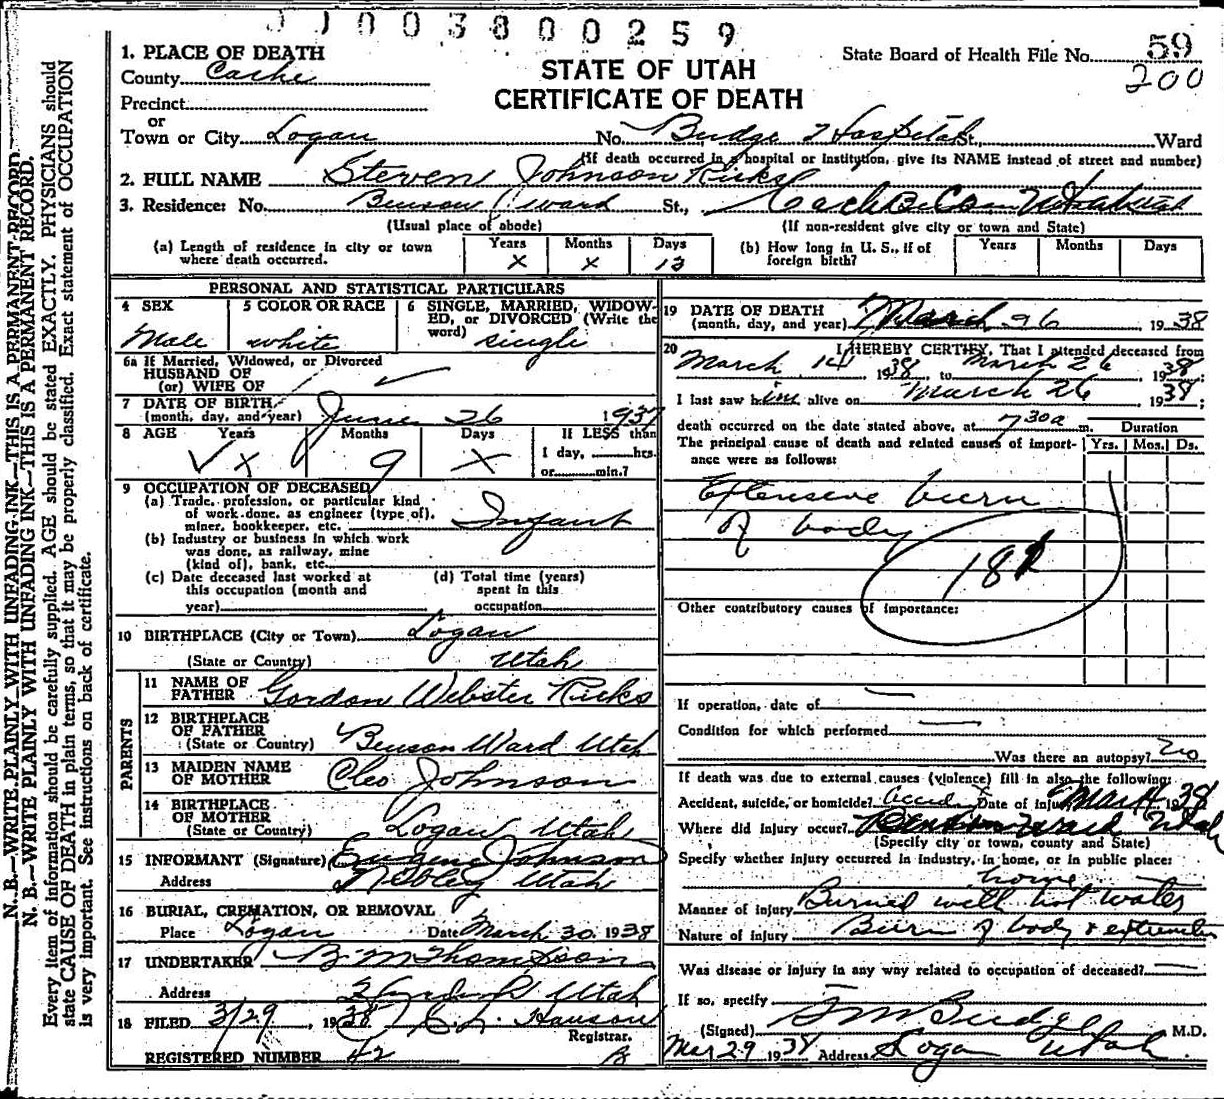 003800259
1. PLACE OF DEATH
County Cache
STATE OF UTAH
CERTIFICATE OF DEATH
State Board of Health File No. 59
200
Precinct
or
Town or City Logan No. Budge Hospital St., Ward
(If death occurred in a hospital or institution, give its NAME instead of street and number)
2. FULL NAME Steven Johnson Ricks
3. Residence: No. Benson Ward St., Cache Co. Utah
(Usual place of abode) (If non-resident give city or town and State)
(a) Length of residence in city or town where death occurred. Years x Months x Days 12
(b) How long in U. S., if of foreign birth? Years Months Days
PERSONAL AND STATISTICAL PARTICULARS
4 SEX Male
5 COLOR OR RACE white
6 SINGLE, MARRIED, WIDOWED, or DIVORCED (Write the word) single
6a If Married, Widowed, or Divorced
HUSBAND OF
(or) WIFE OF
7 DATE OF BIRTH
(month, day, and year) June 26 1937
8 AGE Years x Months 9 Days x If LESS than
1 day, hrs.
or min.?
9 OCCUPATION OF DECEASED
(a) Trade, profession, or particular kind
of work done, as engineer (type of),
miner, bookkeeper, etc. Infant
(b) Industry or business in which work
was done, as railway, mine
(kind of), bank, etc.
(c) Date deceased last worked at
this occupation (month and
year)
(d) Total time (years)
spent in this
occupation
10 BIRTHPLACE (City or Town) Logan
(State or Country) Utah
PARENTS
11 NAME OF FATHER Gordon Webster Ricks
12 BIRTHPLACE OF FATHER
(State or Country) Benson Ward Utah
13 MAIDEN NAME OF MOTHER Cleo Johnson
14 BIRTHPLACE OF MOTHER
(State or Country) Logan Utah
15 INFORMANT (Signature) Eugene Johnson
Address Nibley Utah
16 BURIAL, CREMATION, OR REMOVAL
Place Logan Date March 30, 1938
17 UNDERTAKER B. M. Thompson
Address Utah
18 FILED 3/29, 1938 Hanson
Registrar.
REGISTERED NUMBER 42
19 DATE OF DEATH
(month, day, and year) March 26 1938
20 I HEREBY CERTIFY, That I attended deceased from
March 14 1938, to March 26 1938;
I last saw him alive on March 26 1938;
death occurred on the date stated above, at 730a m.
Duration
The principal cause of death and related causes of importance were as follows:
Yrs. Mos. Ds.
Extensive burn
of body
181
Other contributory causes of importance:
If operation, date of
Condition for which performed
Was there an autopsy? no
If death was due to external causes (violence) fill in also the following:
Accident, suicide, or homicide? Accid Date of injury Mar 14 1938
Where did injury occur? Benson Ward Utah
(Specify city or town, county and State)
Specify whether injury occurred in industry, in home, or in public place:
home
Manner of injury Burned with hot water
Nature of injury Burn of body &
Was disease or injury in any way related to occupation of deceased?
If so, specify
(Signed) Budge M.D.
Mar 29 1938 Address Logan Utah
N. B.—WRITE PLAINLY WITH UNFADING INK—THIS IS A PERMANENT RECORD.
N. B.—WRITE PLAINLY WITH UNFADING INK—THIS IS A PERMANENT RECORD.
Every item of information should be carefully supplied. AGE should be stated EXACTLY. PHYSICIANS should
state CAUSE OF DEATH in plain terms, so that it may be properly classified. Exact statement of OCCUPATION
is very important. See instructions on back of certificate.